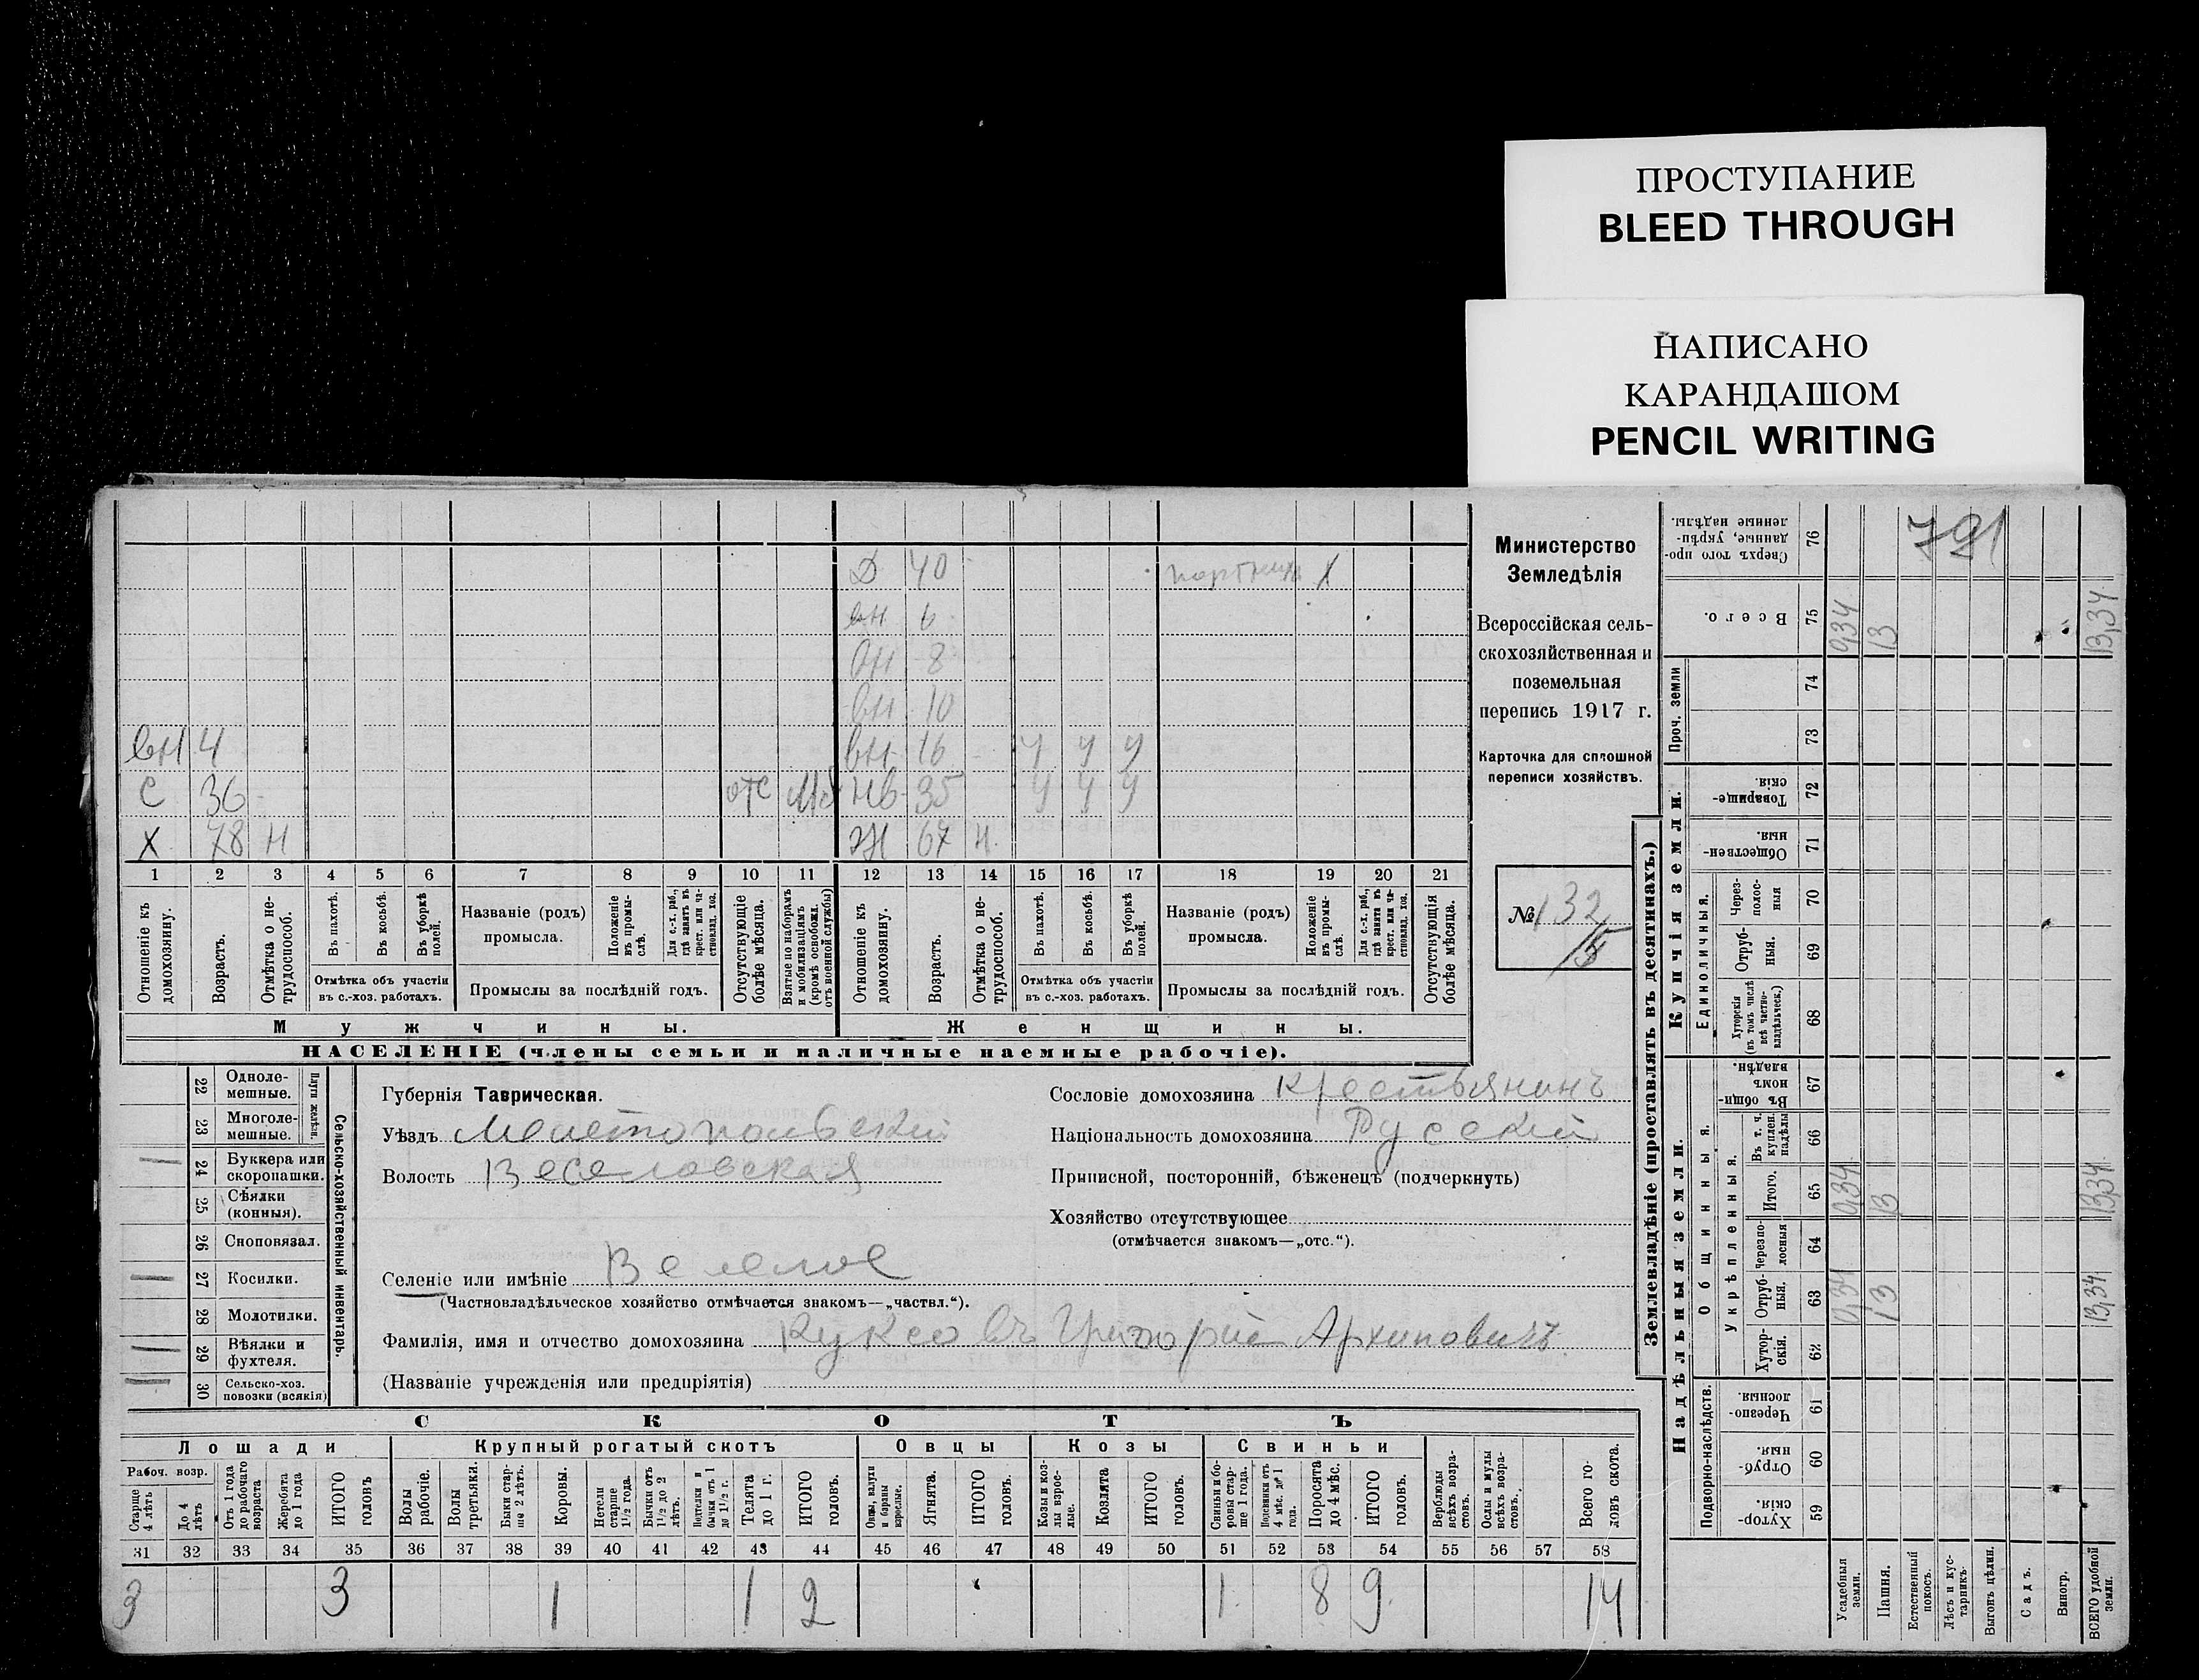 ПРОСТУПАНИЕ
BLEED THROUGH
НАПИСАНО
КАРАНДАШОМ
PENCIL WRITING
Д 40 портниха Х
вн 6
вн 8
вн 10
вн 4 вн 16 У У У
С 36 отс Мб нв 35 У У У
Х 78 Н Ж 67 Н
1 2 3 4 5 6 7 8 9 10 11 12 13 14 15 16 17 18 19 20 21
Отношеніе къ домохозяину.
Возрастъ.
Отмѣтка о не-трудоспособ.
Въ пахотѣ.
Въ косьбѣ.
Въ уборкѣ полей.
Отмѣтка объ участіи въ с.-хоз. работахъ.
Названіе (родъ) промысла.
Положеніе въ промы-слѣ.
Для с.-х. раб., гдѣ занятъ въ крест. или ча-стновлад. хоз.
Промыслы за послѣдній годъ.
Отсутствующіе болѣе мѣсяца.
Взятые по наборамъ и мобилизаціямъ (кромѣ освобожд. отъ военной службы)
Отношеніе къ домохозяину.
Возрастъ.
Отмѣтка о не-трудоспособ.
Въ пахотѣ.
Въ косьбѣ.
Въ уборкѣ полей.
Отмѣтка объ участіи въ с.-хоз. работахъ.
Названіе (родъ) промысла.
Положеніе въ промы-слѣ.
Для с.-х. раб., гдѣ занята въ крест. или ча-стновлад. хоз.
Промыслы за послѣдній годъ.
Отсутствующія болѣе мѣсяца.
Мужчины. Женщины.
НАСЕЛЕНІЕ (члены семьи и наличные наемные рабочіе).
Министерство
Земледѣлія
Всероссійская сель-
скохозяйственная и
поземельная
перепись 1917 г.
Карточка для сплошной
переписи хозяйствъ.
№ 132
Сельско-хозяйственный инвентарь.
Плуги желѣзн.
22 Одноле-мешные.
23 Многоле-мешные.
24 Буккера или скоропашки.
25 Сѣялки (конныя).
26 Сноповязал.
27 Косилки.
28 Молотилки.
29 Вѣялки и фухтеля.
30 Сельско-хоз. повозки (всякія)
Губернія Таврическая.
Уѣздъ Мелитопольскій
Волость Веселовская
Селеніе или имѣніе Веселое
(Частновладѣльческое хозяйство отмѣчается знакомъ—„частвл.“).
Фамилія, имя и отчество домохозяина Куксовъ Григорій Архиповичъ
(Названіе учрежденія или предпріятія)
Сословіе домохозяина крестьянинъ
Національность домохозяина Русскій
Приписной, посторонній, бѣженецъ (подчеркнуть)
Хозяйство отсутствующее
(отмѣчается знакомъ—„отс.“).
СКОТЪ
Лошади Крупный рогатый скотъ Овцы Козы Свиньи
Рабоч. возр.
Старше 4 лѣтъ
До 4 лѣтъ
Отъ 1 года до рабочаго возраста
Жеребята до 1 года
ИТОГО головъ
Волы рабочіе.
Волы третьяки.
Быки стар-ше 2 лѣтъ.
Коровы.
Нетели старше 1½ года.
Бычки отъ 1½ до 2 лѣтъ.
Нетелки и бычки отъ 1 до 1½ г.
Телята до 1 г.
ИТОГО головъ.
Овцы, валухи и бараны взрослые.
Ягнята.
ИТОГО головъ.
Козы и коз-лы взрос-лые.
Козлята
ИТОГО головъ.
Свиньи и бо-ровы стар-ше 1 года.
Подсвинки отъ 4 мѣс. до 1 года.
Поросята до 4 мѣс.
ИТОГО головъ.
Верблюды всѣхъ возра-стовъ.
Ослы и мулы всѣхъ возра-стовъ.
Всего го-ловъ скота.
31 32 33 34 35 36 37 38 39 40 41 42 43 44 45 46 47 48 49 50 51 52 53 54 55 56 57 58
3 3 1 1 2 1 8 9 14
Землевладѣніе (проставлять въ десятинахъ.)
Надѣльныя земли.
Купчія земли.
Проч. земли
Подворно-наслѣдств.
Общинныя.
Укрѣпленныя.
Единоличныя.
Хутор-скія 59
Отруб-ныя. 60
Черезпо-лосныя 61
Хутор-скія. 62
Отруб-ныя. 63
Черезпо-лосныя 64
Итого. 65
Въ т. ч. куплен. надѣлы 66
Въ общи-номъ владѣн. 67
Хуторскія (въ томъ числѣ всѣ частно-владѣльческ.) 68
Отруб-ныя. 69
Через-полос-ныя 70
Обществен-ныя. 71
Товарище-скія. 72
73
74
Всего. 75
Сверхъ того про-данные, укрѣп-ленные надѣлы. 76
791
0,34 13 13,34
0,34 13 13,34
0,34 13 13,34
Усадебныя земли.
Пашня.
Естественный покосъ.
Лѣсъ и кус-тарникъ
Выгонъ цѣлин.
Садъ.
Виногр.
ВСЕГО удобной земли.